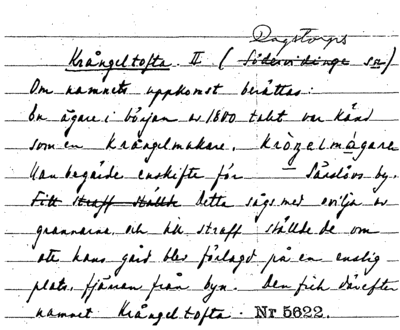 Dagstorps
Krångeltofta. II (Södervidinge sn)
Om namnets uppkomst berättas:
En ägare i början av 1800 talet var känd
som en krångelmakare, kròŋelmågare
Han begärde enskifte för — Särslövs by.
Till straff ställde Detta sågs med ovilja av
grannarna, och till straff ställde de om
att hans gård blev förlagd på en enslig
plats, fjärran från byn. Den fick därefter
namnet Krångeltofta. Nr 5622.